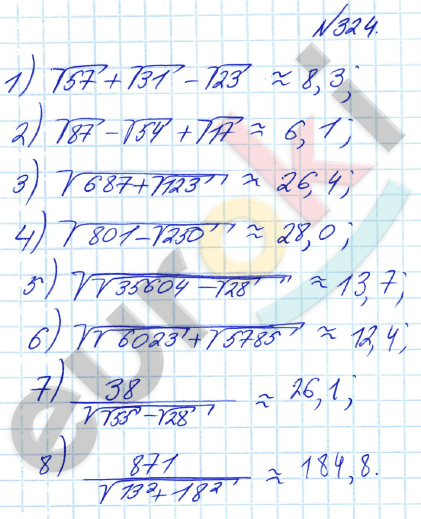 №324.
1) √57 + √31 - √23 ≈ 8,3;
2) √87 - √54 + √17 ≈ 6,1;
3) √(687 + √123) ≈ 26,4;
4) √(801 - √250) ≈ 28,0;
5) √(√35604 - √28) ≈ 13,7;
6) √(√6023 + √5785) ≈ 12,4;
7) 38 / √(√55 - √28) ≈ 26,1;
8) 871 / √(13² + 18²) ≈ 184,8.
euroki